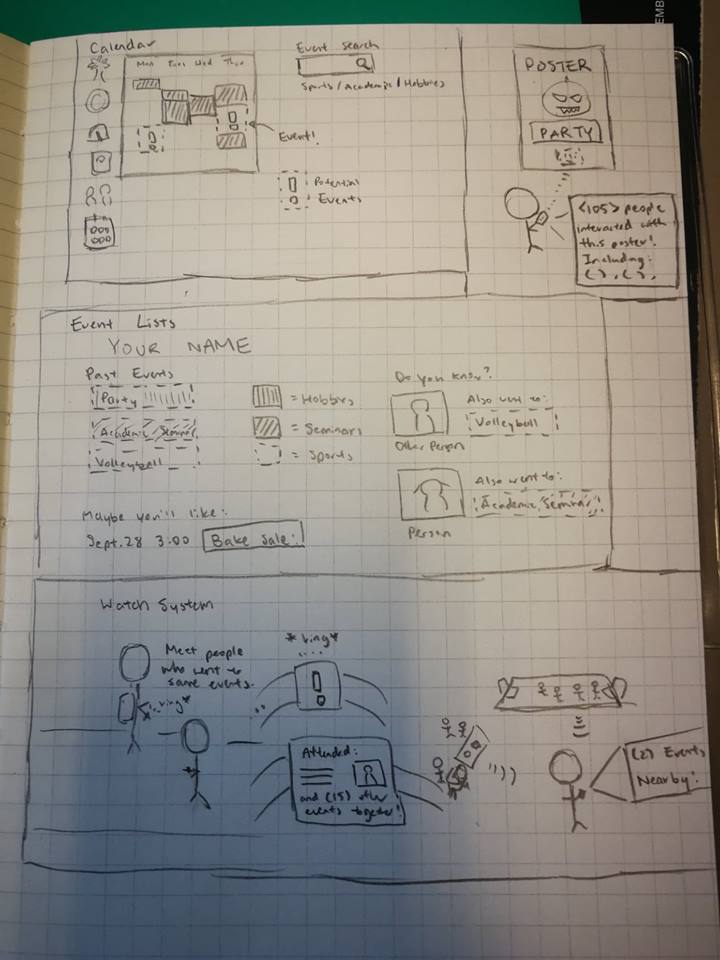 Calendar
Mon Tues Wed Thu
Event Search
Sports/Academic/Hobbies
Event!
Potential
Events
POSTER
PARTY
<105> people
interacted with
this poster!
Including:
( ), ( ),
Event Lists
YOUR NAME
Past Events
Party
Academic Seminar
Volleyball
= Hobbies
= Seminars
= Sports
Do you know?
Also went to:
Volleyball
Other Person
Also went to:
Academic Seminar
Person
Maybe you'll like:
Sept. 28 3:00 Bake Sale!
Watch System
Meet people
who went to
same events.
*ring*
*bing*
!
Attended:
and (15) other
events together!
(2) Events
Nearby!
EMB